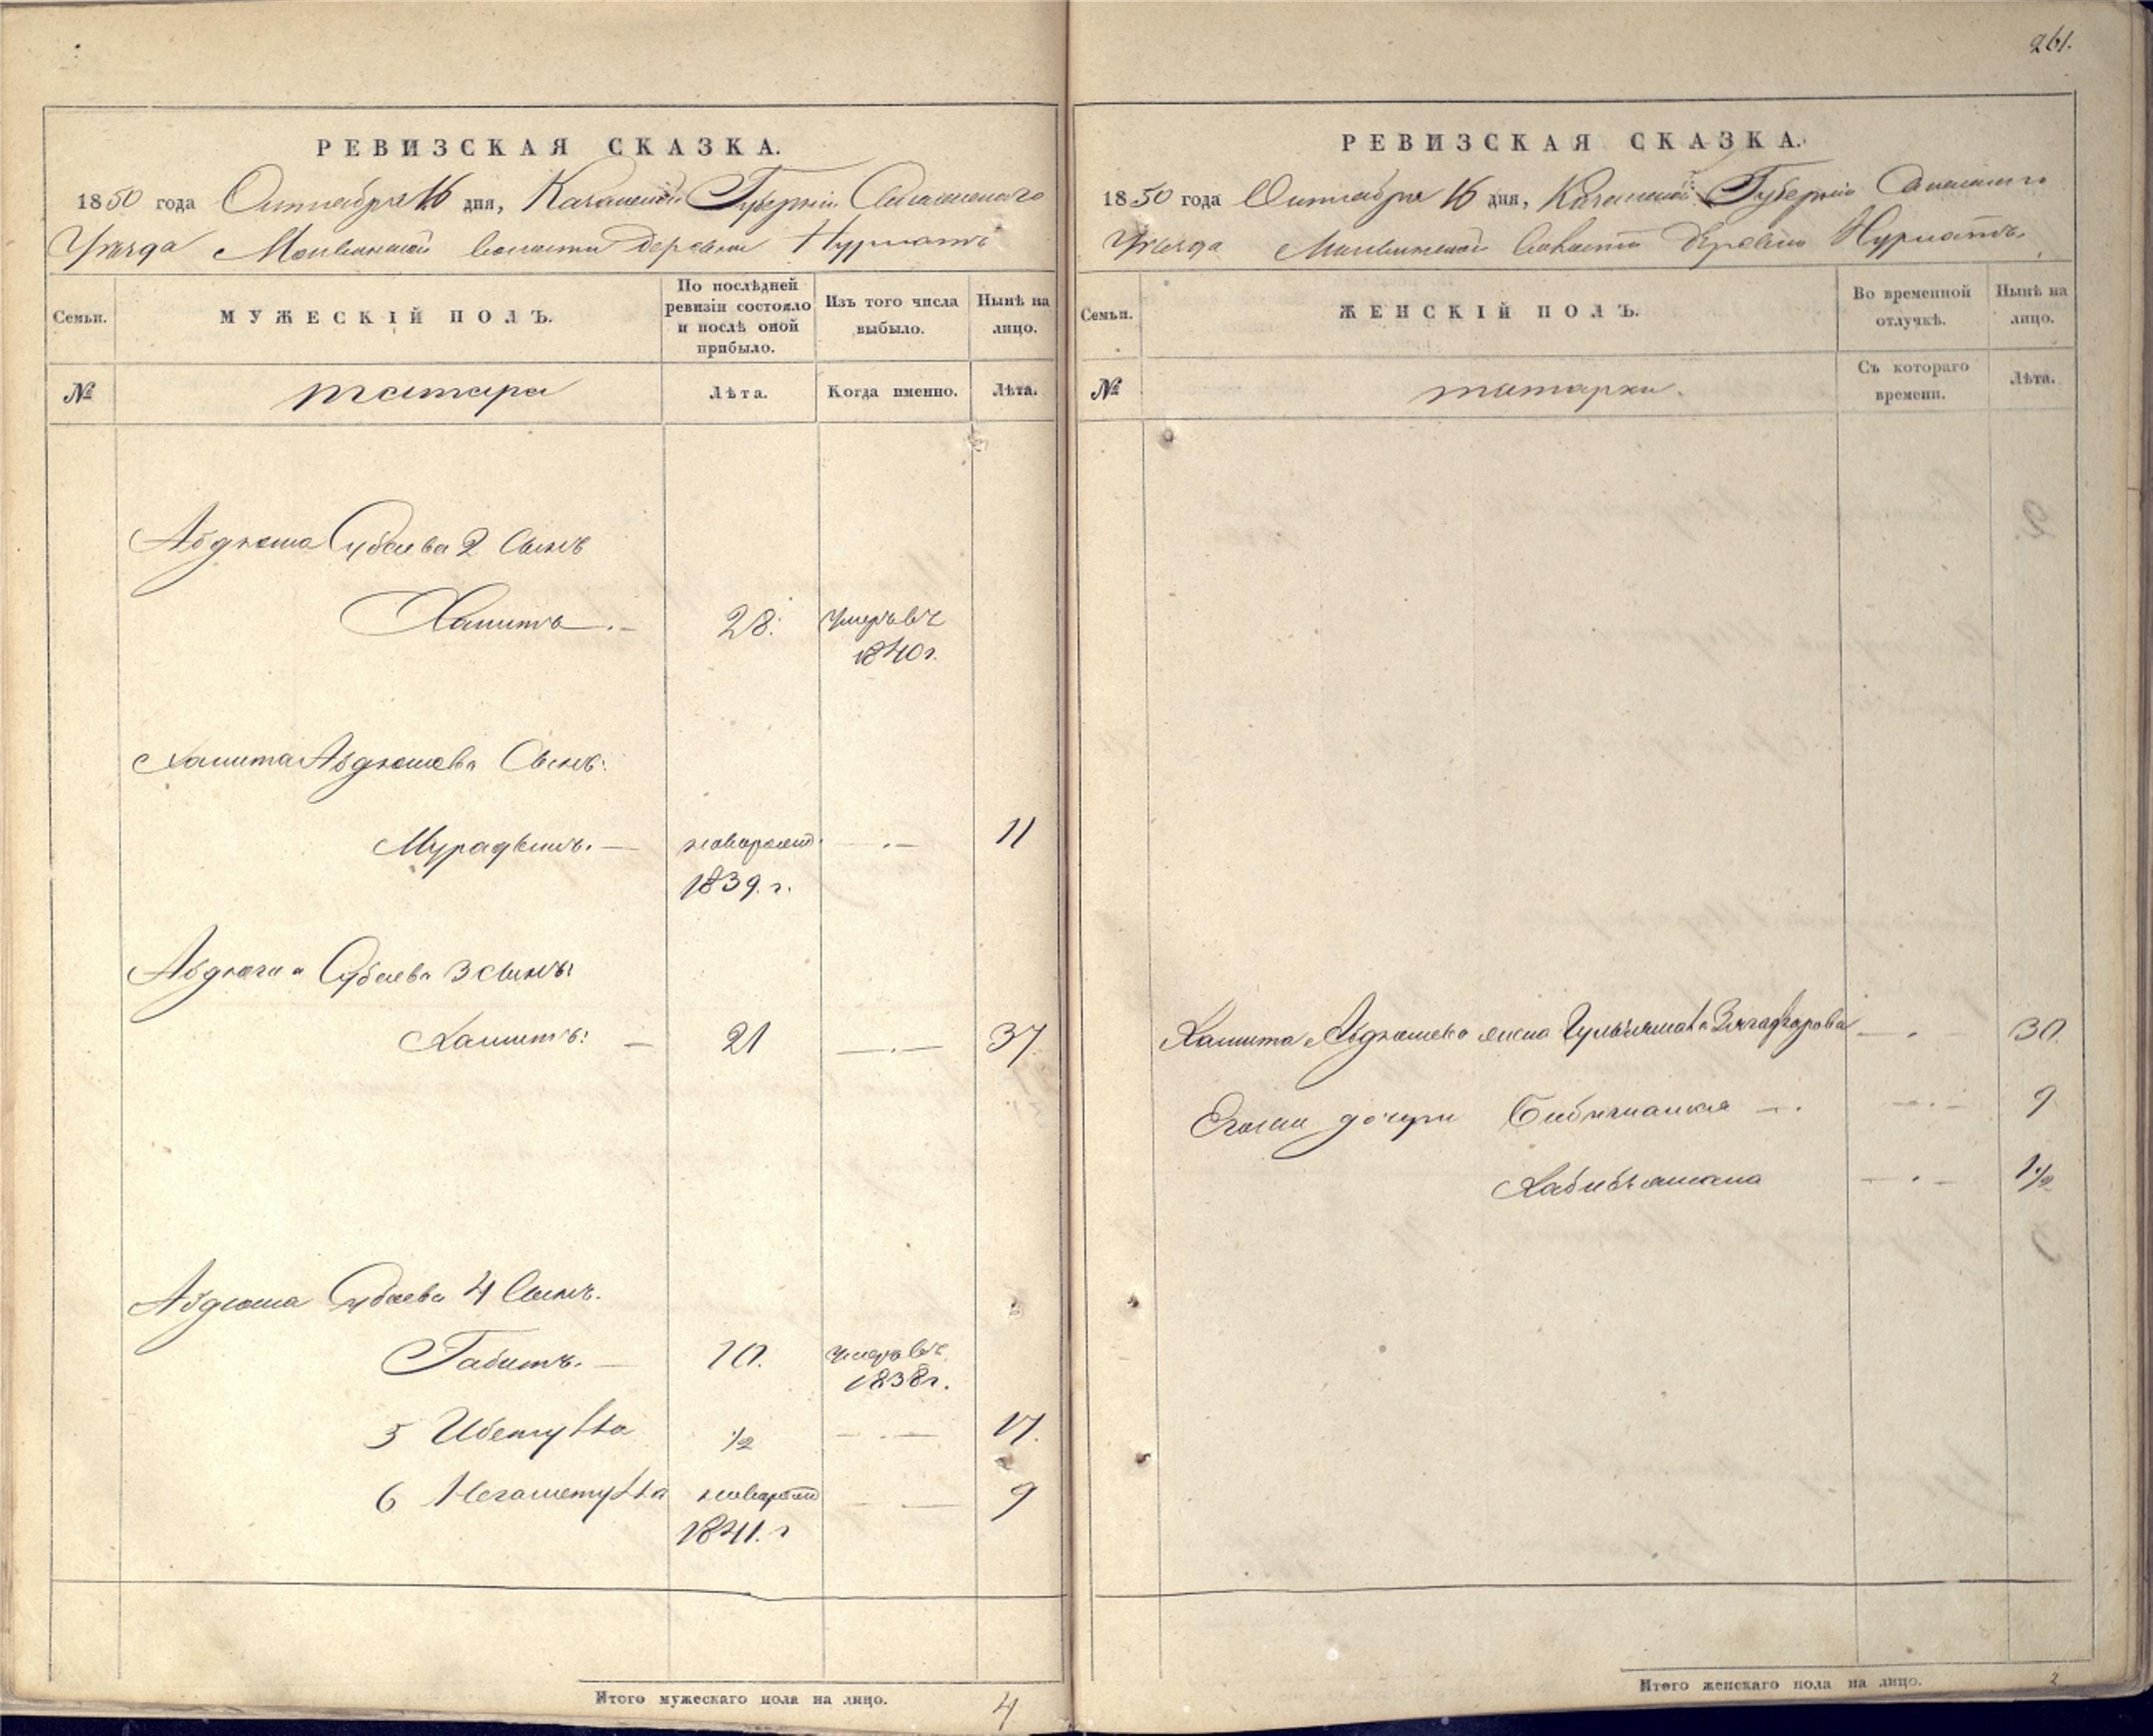 261.
РЕВИЗСКАЯ СКАЗКА.
1850 года Октября 16 дня, Казанской Губернии Спасскаго
Уѣзда волости деревни Нурлатъ
Семьи. МУЖЕСКІЙ ПОЛЪ. По послѣдней ревизіи состояло и послѣ оной прибыло. Изъ того числа выбыло. Нынѣ на лицо.
№ татара Лѣта. Когда именно. Лѣта.
Абдюша Субаева 2 Сынъ
Хамитъ. — 28. умеръ въ
1840 г.
Хамита Абдюшева Сынъ:
— новорожд. — . — 11
1839. г.
Субаева 3 сынъ:
— 21 — . — 37
Абдюша Субаева 4 Сынъ.
Габитъ. — 10. умеръ въ
1838 г.
5 Ибетулла 1/2 — . — 17.
6 Негаметулла новорожд — . — 9
1841. г
Итого мужескаго пола на лицо. 4
РЕВИЗСКАЯ СКАЗКА.
1850 года Октября 16 дня, Казанской Губернии Спасскаго
Уѣзда волости деревни Нурлатъ.
Семьи. ЖЕНСКІЙ ПОЛЪ. Во временной отлучкѣ. Нынѣ на лицо.
№ татарки. Съ котораго времени. Лѣта.
Абдюшева жена Зягафарова — . — 30
дочери — . — . — 9
Хабибъямала — . — 1 1/2
Итого женскаго пола на лицо. 2